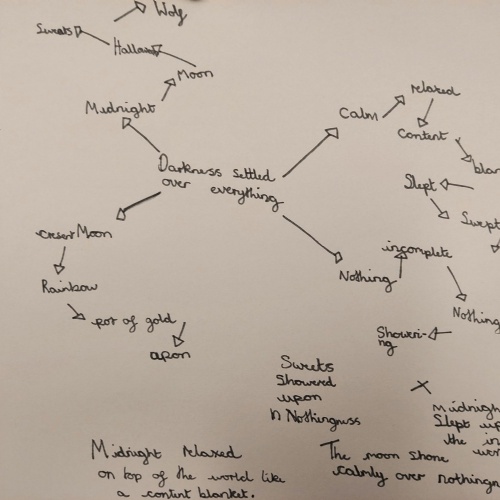 Wolf
Sweets
Hallow
Moon
Midnight
relaxed
Calm
Content
blan
Darkness settled
over everything
Slept
Swept
cresent Moon
incomplete
Rainbow
Nothing
pot of gold
Nothing
Showeri-
ng
apon
Sweets
Showered
upon
n Nothingness
Midnigh
Slept up
the in
Midnight relaxed
on top of the world like
a content blanket.
The moon shone
calmly over nothingn